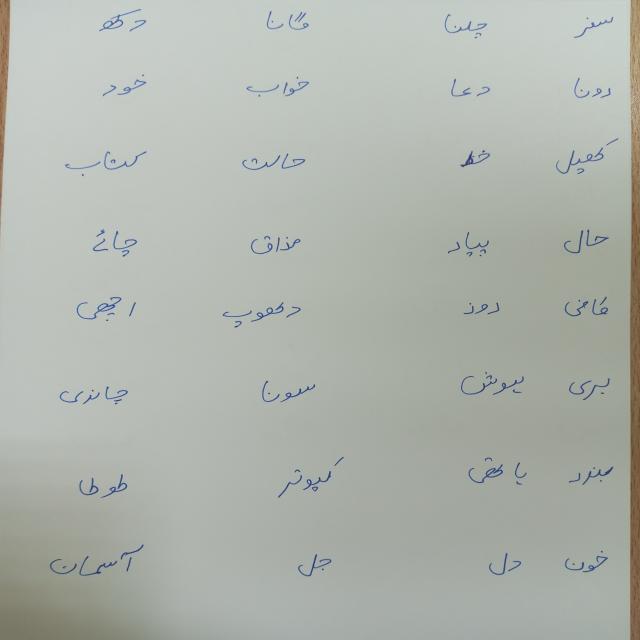 سفر چلنا گانا دکھ
رونا دعا خواب خود
کھیل خط حالت کتاب
حال پیار مذاق چائے
ماضی روز دھوپ اچھی
بری ہوش سونا چاندی
بندر ہاتھی کمپوتر طوطا
خون دل جل آسمان